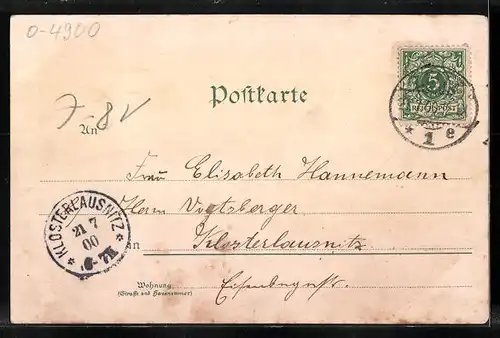 0-4900
Postkarte
An
7-8V
5
REICHSPOST
* 1 e
Frau Elisabeth Hannemann
Herrn Vogtsberger
in Klosterlausnitz
* KLOSTERLAUSNITZ *
21 7
00
6-7N
Wohnung
(Strasse und Hausnummer)